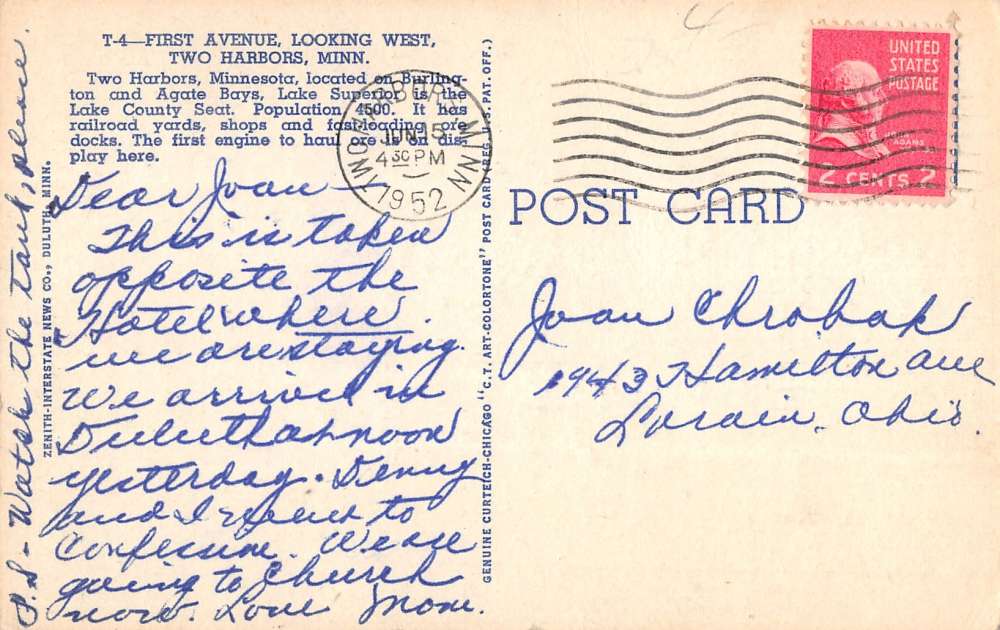 T-4—FIRST AVENUE, LOOKING WEST,
TWO HARBORS, MINN.
Two Harbors, Minnesota, located on Burling-
ton and Agate Bays, Lake Superior is the
Lake County Seat. Population 4500. It has
railroad yards, shops and fast-loading ore
docks. The first engine to haul ore is on dis-
play here.
Dear Joan —
This is taken
opposite the
Hotel where
we are staying.
We arrived in
Duluth at noon
yesterday. Denny
and I went to
Confession. We are
going to Church
now. Love Mom.
P.S - Watch the tank, please.
ZENITH-INTERSTATE NEWS CO., DULUTH, MINN.
GENUINE CURTEICH-CHICAGO "C.T. ART-COLORTONE" POST CARD (REG. U.S. PAT. OFF.)
TWO HARBORS MINN
JUN 15
4 30 PM
1952
4
UNITED
STATES
POSTAGE
JOHN
ADAMS
2 CENTS 2
POST CARD
Joan Chrobak
1943 Hamilton Ave
Lorain, Ohio.